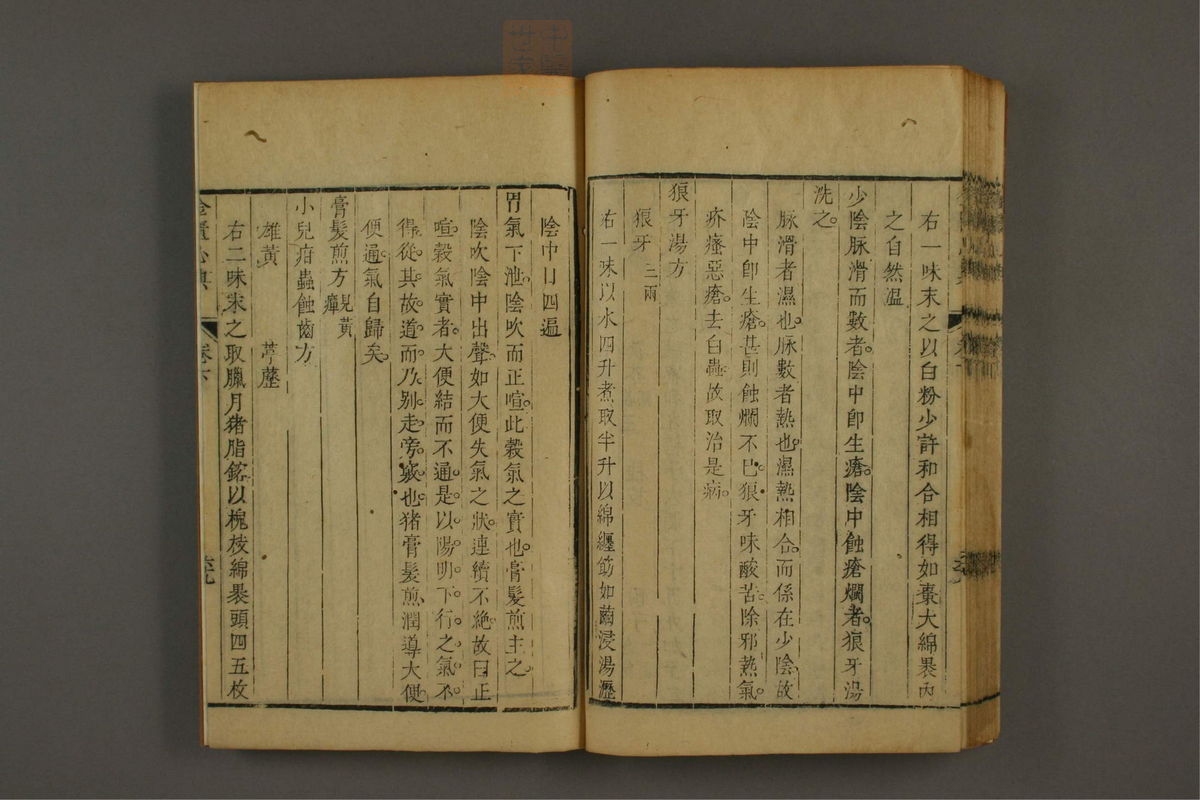 右一味末之以白粉少許和合相得如棗大綿裹內
之自然溫
少陰脉滑而數者陰中卽生瘡陰中蝕瘡爛者狼牙湯
洗之
脉滑者濕也脉數者熱也濕熱相合而係在少陰故
陰中卽生瘡甚則蝕爛不已狼牙味酸苦除邪熱氣
疥瘙惡瘡去白蟲故取治是病
狼牙湯方
狼牙三兩
右一味以水四升煮取半升以綿纏筯如繭浸湯瀝
陰中日四遍
胃氣下泄陰吹而正喧此穀氣之實也膏髮煎主之
陰吹陰中出聲如大便失氣之狀連續不絶故曰正
喧穀氣實者大便結而不通是以陽明下行之氣不
得從其故道而乃别走旁竅也猪膏髮煎潤導大便
便通氣自歸矣
膏髮煎方見黃癉
小兒疳蟲蝕齒方
雄黃 葶藶
右二味末之取臘月猪脂鎔以槐枝綿裹頭四五枚
金匱心典 卷下